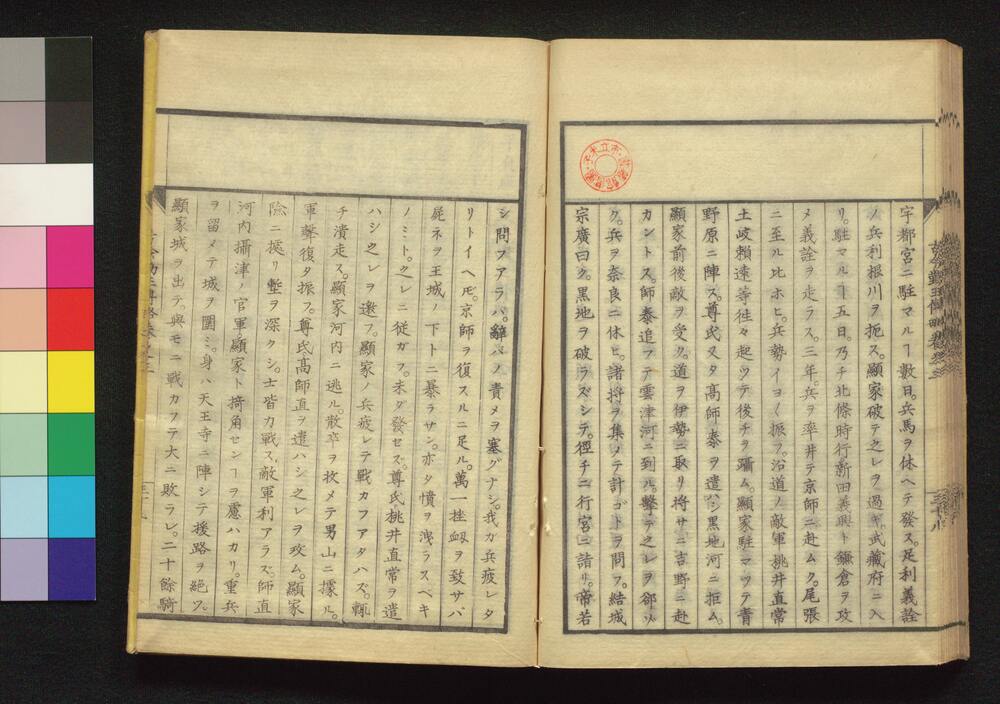 宇都宮ニ駐マルヿ數日。兵馬ヲ休ヘテ發ス。足利義詮
ノ兵利根川ヲ扼ス。顯家破テ之レヲ過ギ。武藏府ニ入
リ。駐マルヿ五日。乃チ北條時行。新田義興ト鎌倉ヲ攻
メ義詮ヲ走ラス。三年。兵ヲ率井テ京師ニ赴ムク。尾張
ニ至ル比ホヒ。兵勢イヨ〱振フ。沿道ノ敵軍桃井直常
土岐頼遠等徃々起ツテ後チヲ躡ム。顯家駐マツテ青
野原ニ陣ス。尊氏又タ高師泰ヲ遣ハシ黒地河ニ拒ム。
顯家前後敵ヲ受ク。道ヲ伊勢ニ取リ将サニ吉野ニ赴
カントス。師泰追フテ雲津河ニ到ル。擊テ之レヲ郤ソ
ク。兵ヲ奈良ニ休ヒ。諸将ヲ集メテ計ゴトヲ問フ。結城
宗廣曰ク。黒地ヲ破ラズシテ。徑チニ行宮ニ詣リ。帝若
シ問フアラバ。辭バノ責メヲ塞グナシ。我ガ兵疲レタ
リトイヘ𪜈。京師ヲ復スルニ足ル。萬一挫衂ヲ致サバ
屍ネヲ王城ノ下トニ暴ラサン。亦タ憤ヲ洩ラスベキ
ノミト。之レニ従ガフ。未ダ發セズ。尊氏桃井直常ヲ遣
ハシ之レヲ邀フ。顯家ノ兵疲レテ戰カフアタハズ。輒
チ潰走ス。顯家河内ニ逃ル。散卒ヲ收メテ男山ニ據ル。
軍擊復タ振フ。尊氏高師直ヲ遣ハシ之レヲ攻ム。顯家
險ニ據リ塹ヲ深クシ。士皆力戰ス。敵軍利アラズ。師直
河内攝津ノ官軍顯家ト掎角センヿヲ慮ハカリ。重兵
ヲ留メテ城ヲ圍ミ。身ハ天王寺ニ陣シテ援路ヲ絶ツ。
顯家城ヲ出テ。與モニ戰カフテ大ニ敗ラレ。二十餘騎